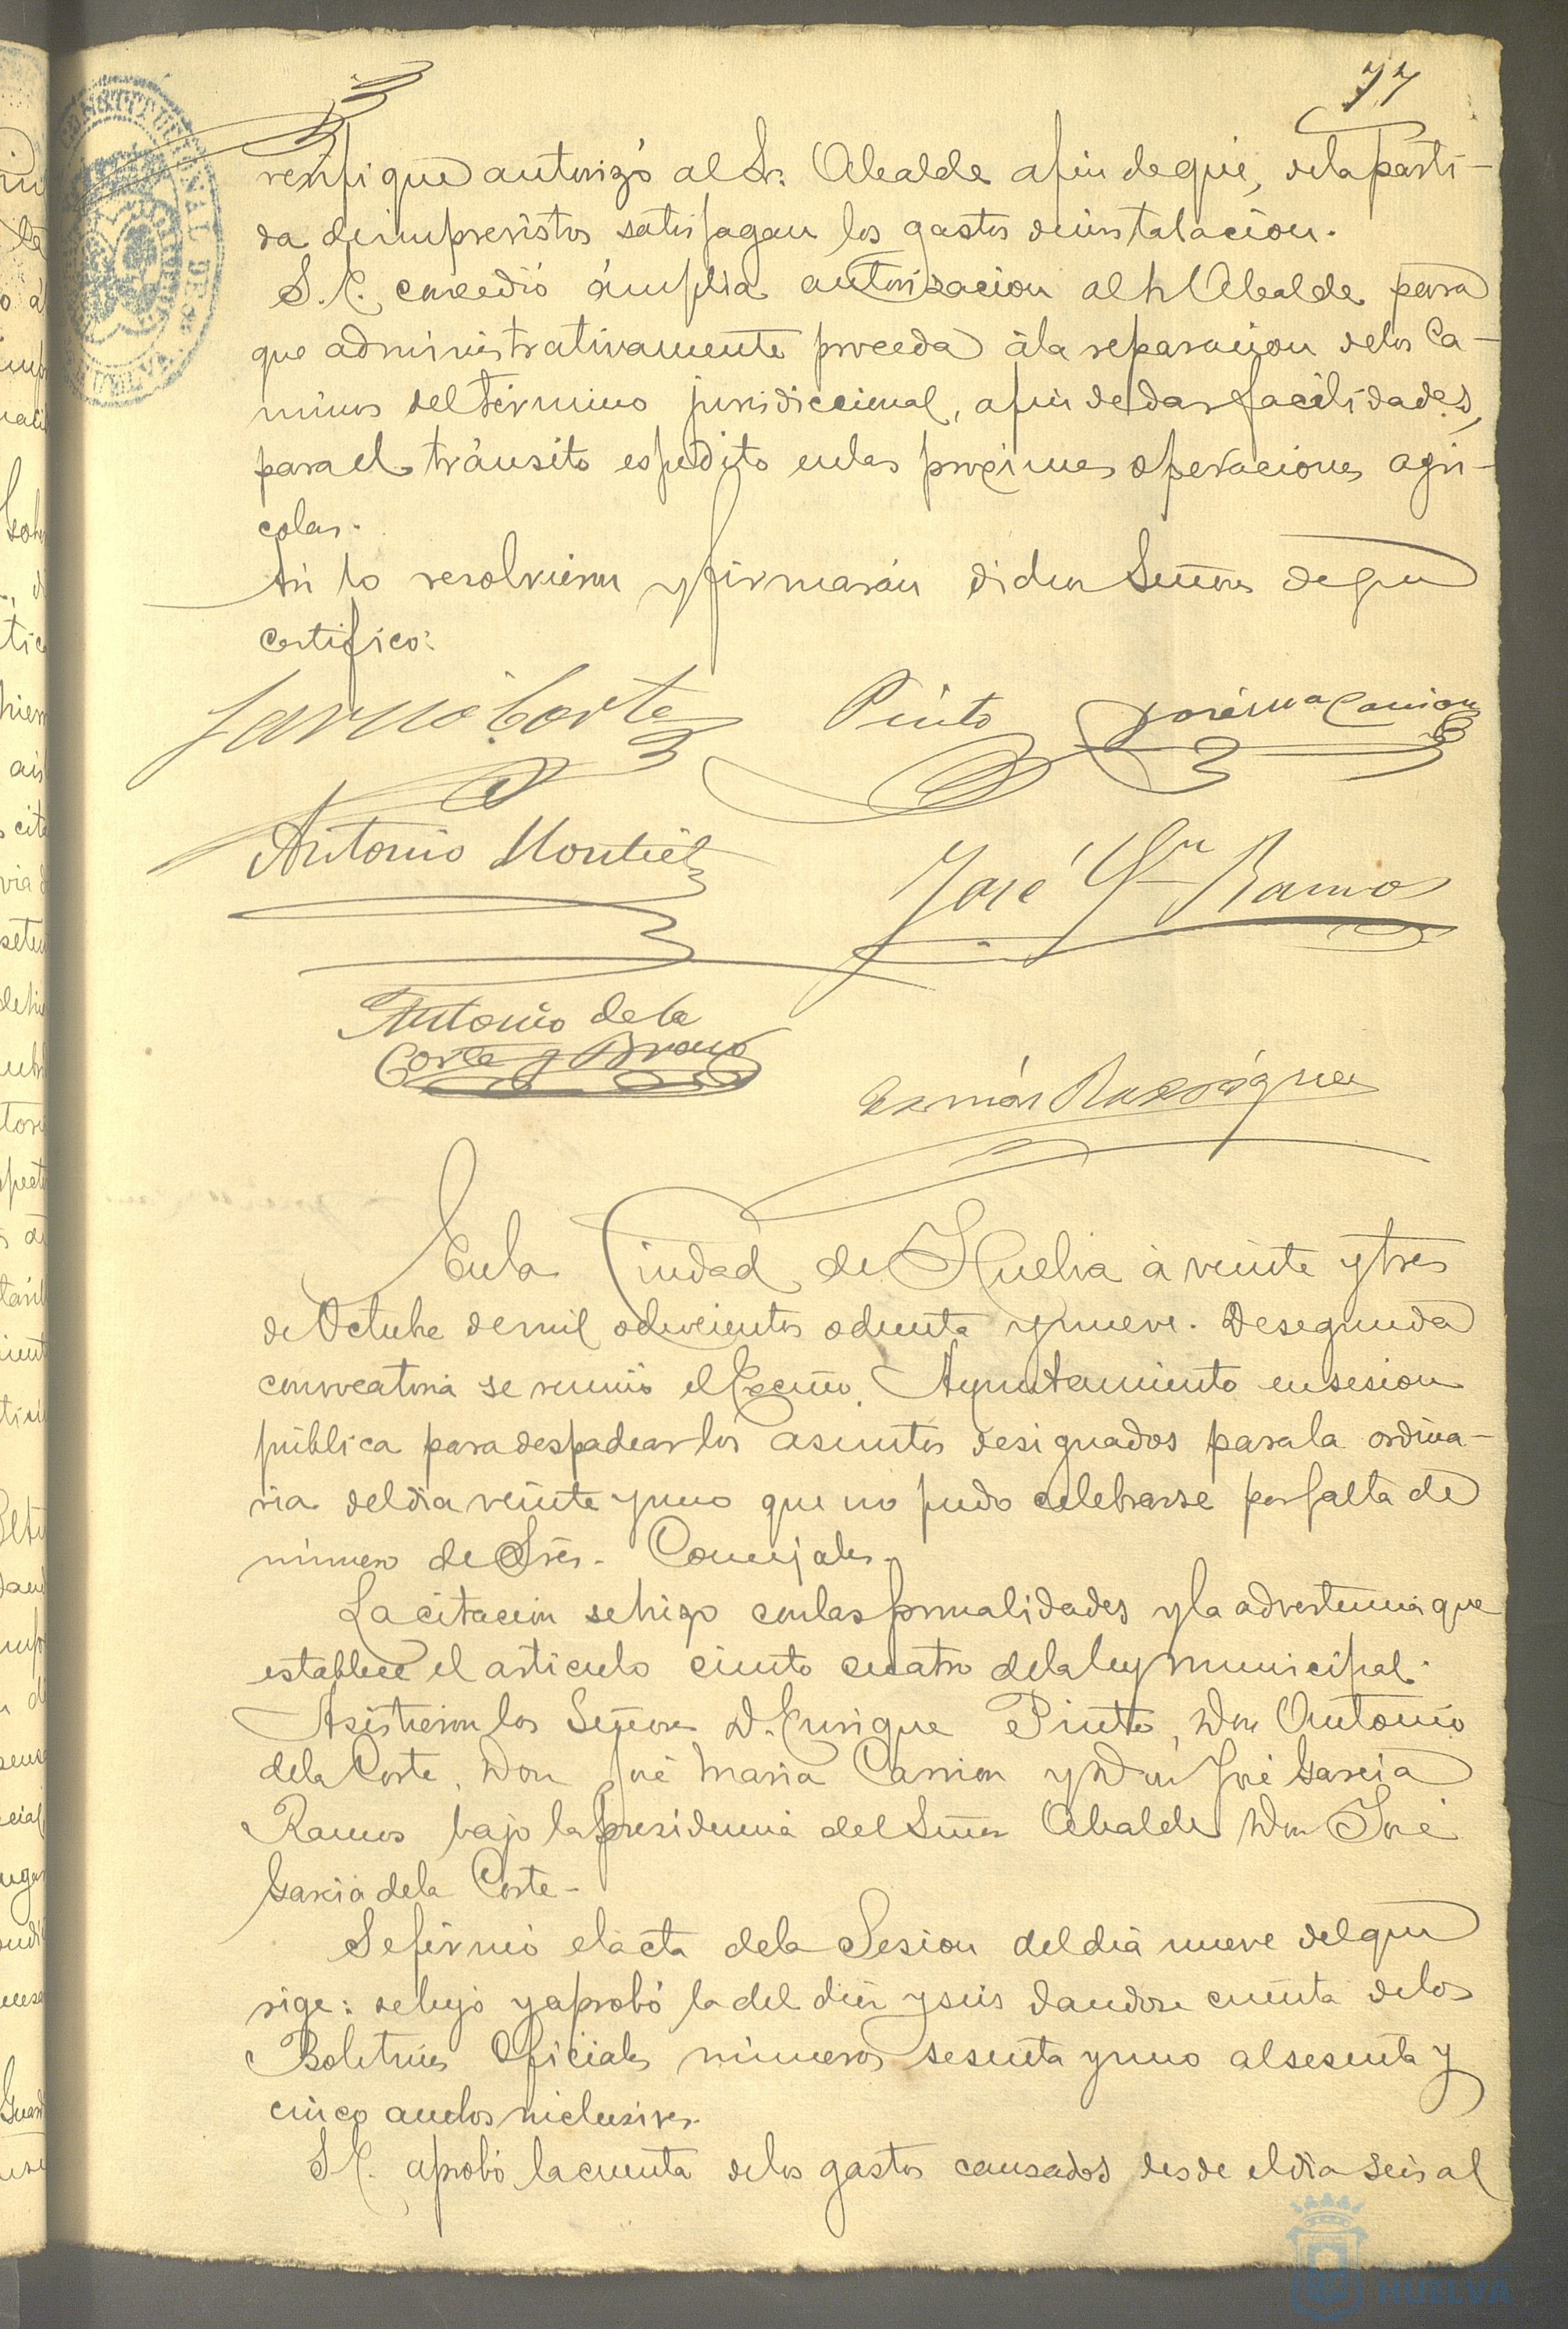 77
verifique autorizó al Sr. Alcalde afin de que, dela parti-
da de imprevistos satisfagan los gastos de instalacion.
S.E. concedió ámplia autorizacion al Sr Alcalde para
que administrativamente proceda á la reparacion delos Ca-
minos del término jurisdiccional, afin de dar facilidades,
para el tránsito espedito enlas proximas operaciones agri-
colas.
Asi lo resolvieron y firmarán dichos Señores de que
certifico:
García Corte
Pinto
José Ma Carrion
Antonio Montiel
José Ga Ramos
Antonio de la
Corte y Bravo
Román Rodríguez
En la Ciudad de Huelva á veinte y tres
de Octubre de mil ochocientos ochenta y nueve. De segunda
convocatoria se reunió el Excmo. Ayuntamiento en sesion
pública para despachar los asuntos designados para la ordina-
ria del dia veinte y uno que no pudo celebrarse por falta de
número de Sres. Concejales.
La citacion se hizo con las formalidades y la advertencia que
establece el articulo ciento cuatro dela ley municipal.
Asistieron los Señores D. Enrique Pinto, Don Antonio
dela Corte, Don José Maria Carrion y Don José Garcia
Ramos bajo la presidencia del Señor Alcalde Don José
Garcia dela Corte-
Se firmó el acta dela Sesion del dia nueve del que
rige: se leyó y aprobó la del diez y seis dandose cuenta delos
Boletines Oficiales números sesenta y uno al sesenta y
cinco ambos inclusives.
S.E. aprobó la cuenta delos gastos causados desde el dia seis al
HUELVA